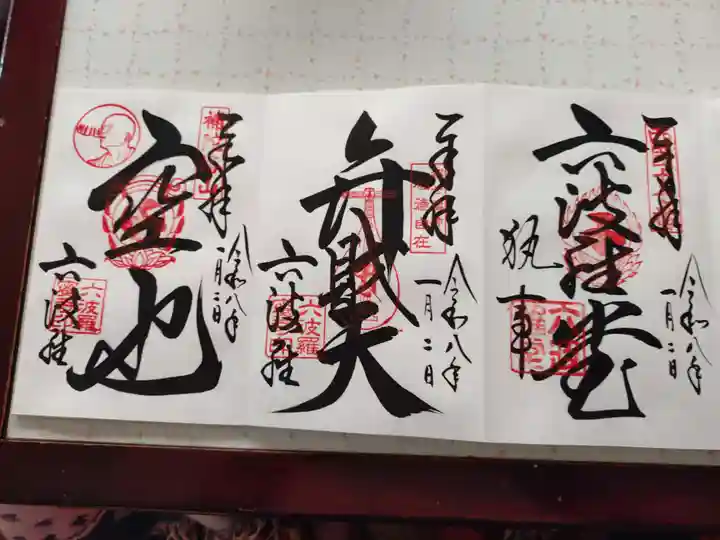 奉拝
令和八年
一月二日
六波羅堂
執事
奉拝
自在
令和八年
一月二日
弁財天
六波羅
六波羅
奉拝
令和八年
一月二日
空也
六波羅
六波羅